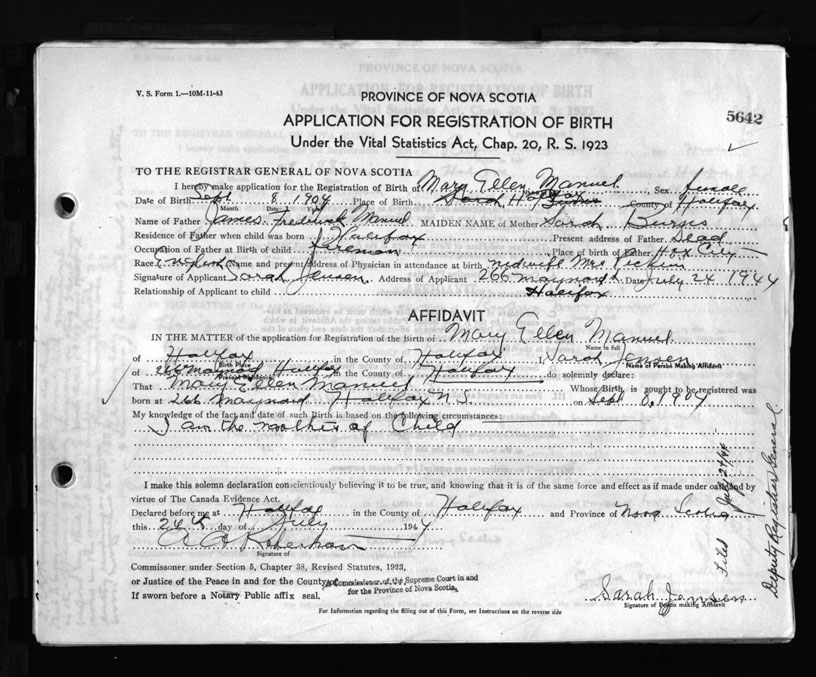 V. S. Form 1.—10M-11-43
PROVINCE OF NOVA SCOTIA
5642
APPLICATION FOR REGISTRATION OF BIRTH
Under the Vital Statistics Act, Chap. 20, R. S. 1923
TO THE REGISTRAR GENERAL OF NOVA SCOTIA
I hereby make application for the Registration of Birth of Mary Ellen Manuel Sex female
Date of Birth Sept 8 1904 Place of Birth County of Halifax
Name of Father James Frederick Manuel MAIDEN NAME of Mother Sarah
Residence of Father when child was born Halifax Present address of Father Dead
Occupation of Father at Birth of child Fireman Place of birth of Father Hfx City
Race English Name and present Address of Physician in attendance at birth midwife Mrs
Signature of Applicant Sarah Jensen Address of Applicant 266 Maynard Date July 24 1944
Relationship of Applicant to child Halifax
AFFIDAVIT
IN THE MATTER of the application for Registration of the Birth of Mary Ellen Manuel
Name in full
of Halifax in the County of Halifax I, Sarah Jensen
Birth Place Name of Person Making Affidavit
of 266 Maynard Halifax in the County of Halifax do solemnly declare:
That Mary Ellen Manuel Whose Birth is sought to be registered was
born at 266 Maynard Halifax N.S. on Sept 8, 1904
My knowledge of the fact and date of such Birth is based on the following circumstances:
I am the mother of Child
I make this solemn declaration conscientiously believing it to be true, and knowing that it is of the same force and effect as if made under oath and by
virtue of The Canada Evidence Act.
Declared before me at Halifax in the County of Halifax and Province of Nova Scotia
this 26th day of July 1944
Signature of
Commissioner under Section 5, Chapter 38, Revised Statutes, 1923,
or Justice of the Peace in and for the County of
A Commissioner of the Supreme Court in and
for the Province of Nova Scotia
If sworn before a Notary Public affix seal.
Sarah Jensen
Signature of Person making Affidavit
For Information regarding the filling out of this Form, see Instructions on the reverse side
Filed July 27/44
Deputy Registrar General